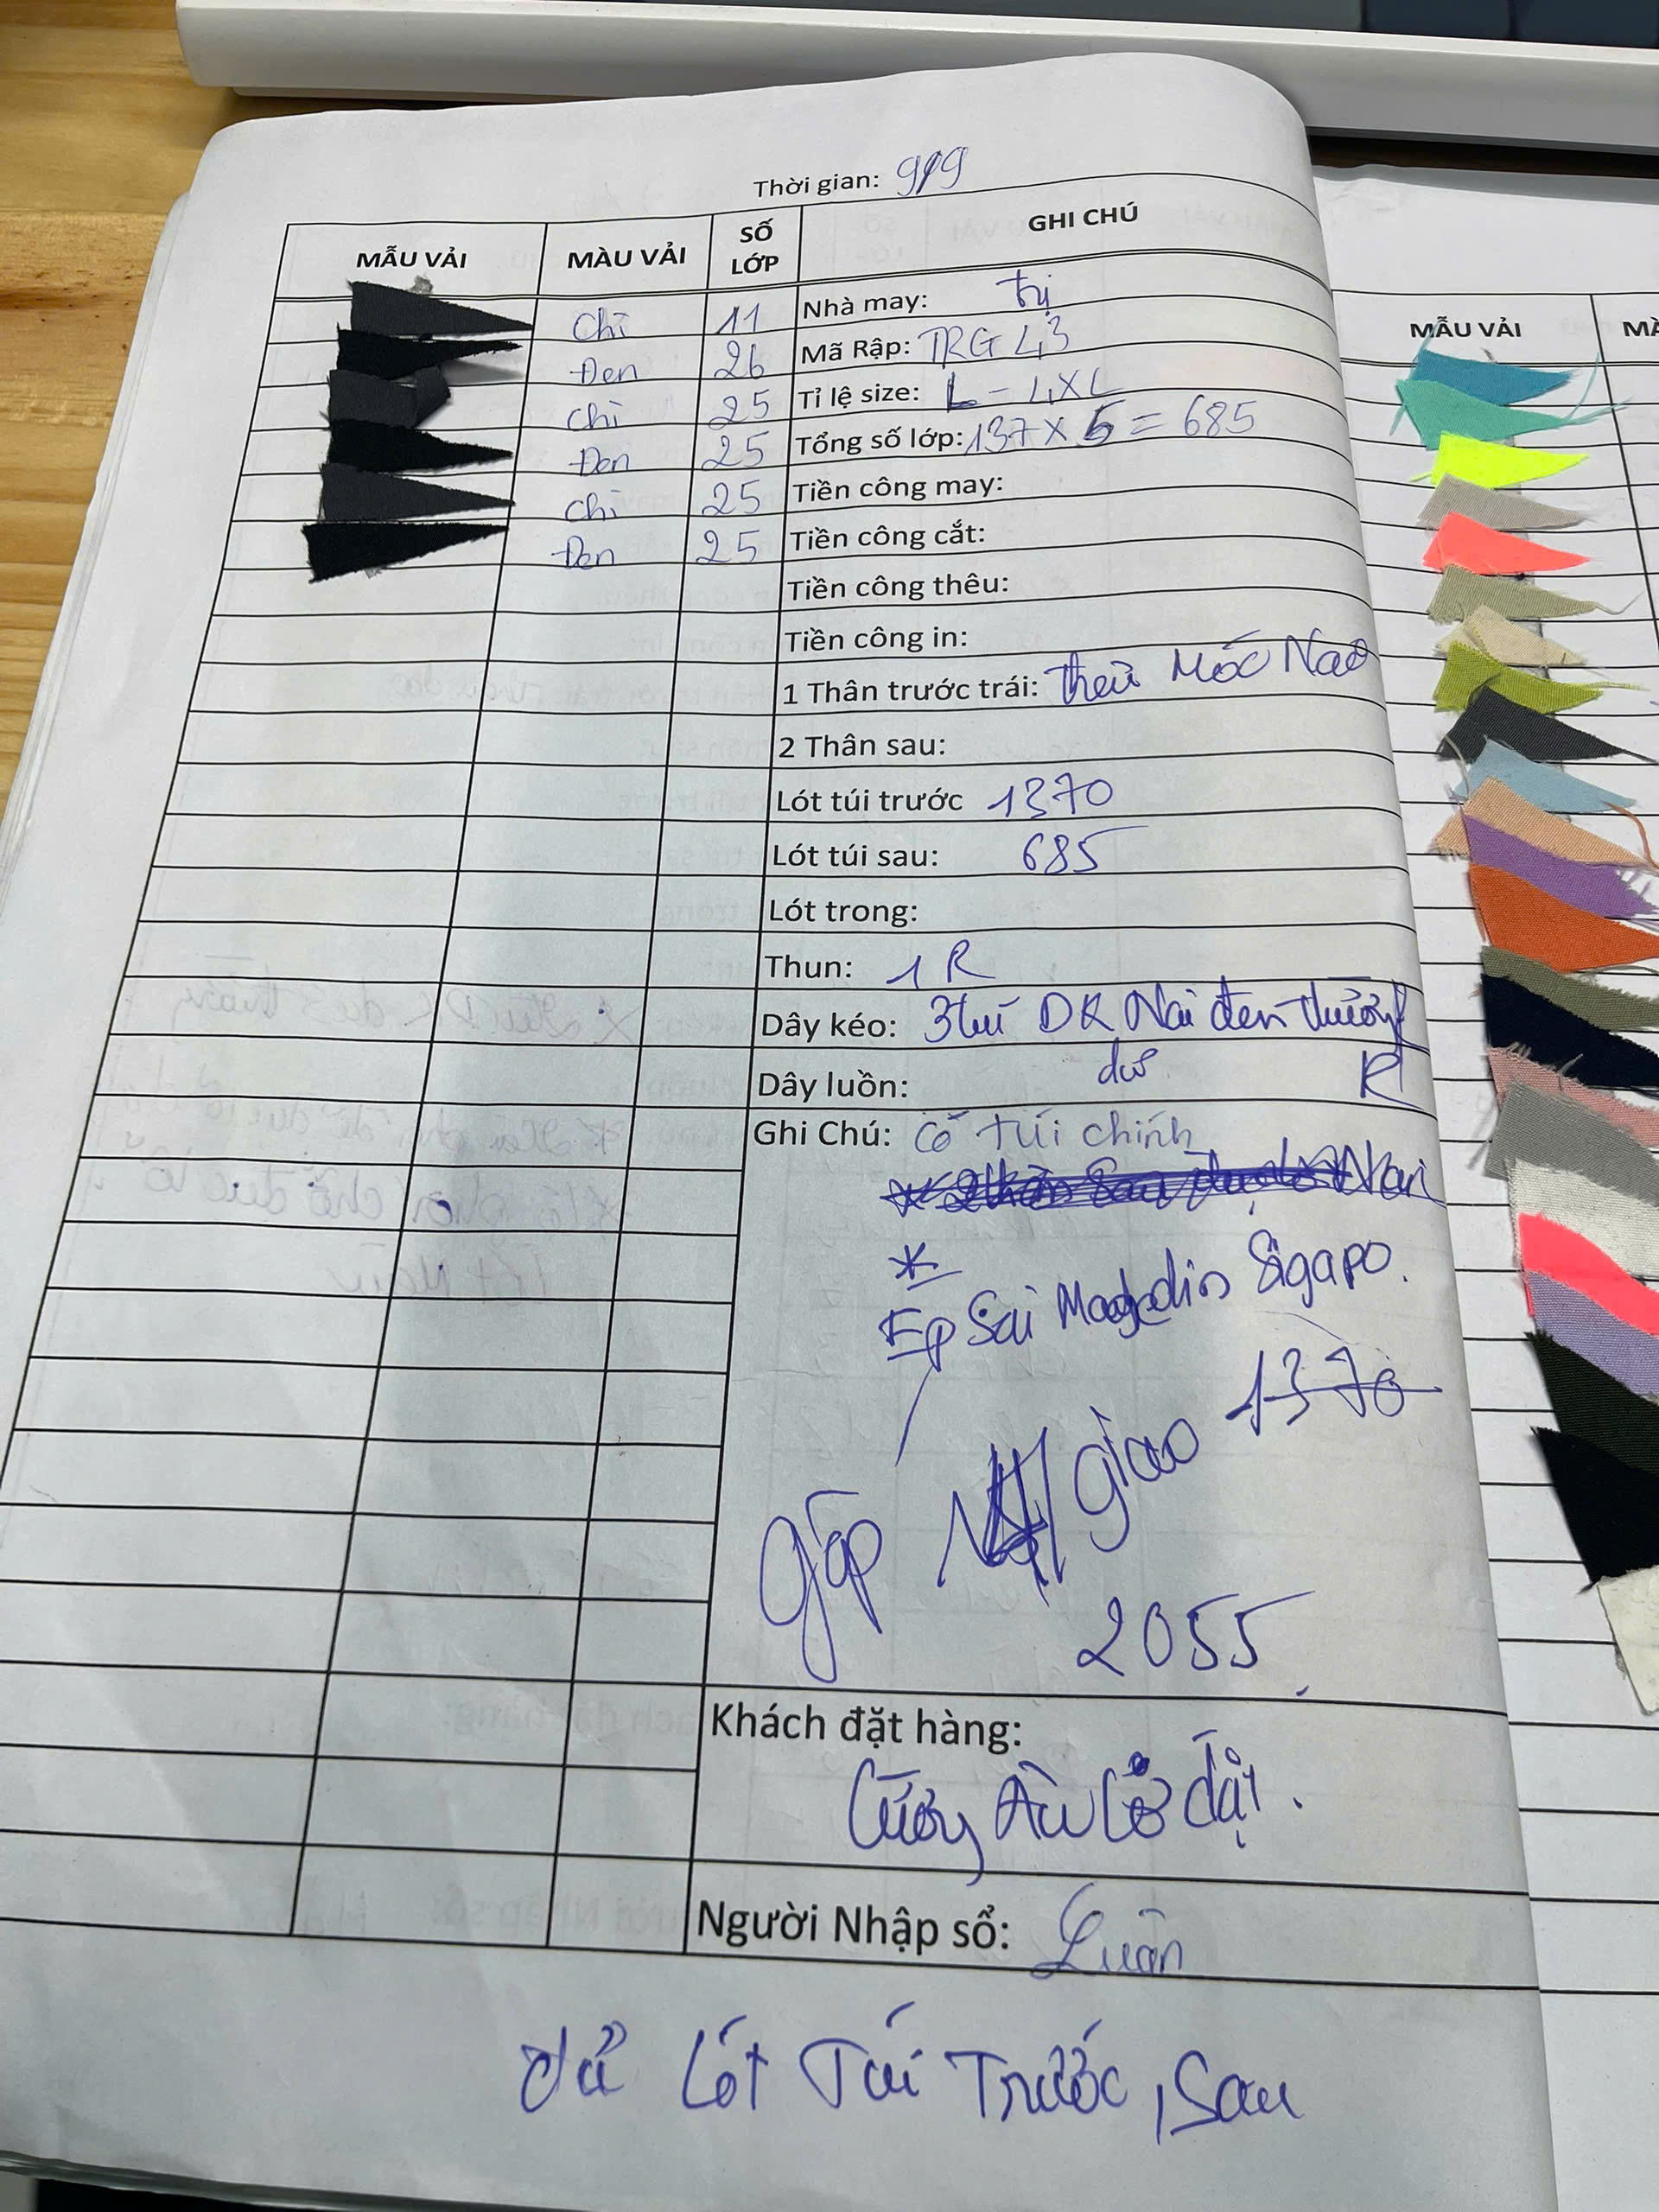 Thời gian: 9/9
MẪU VẢI MÀU VẢI SỐ LỚP GHI CHÚ
Chì 11 Nhà may: Trị
Đen 26 Mã Rập: TRG 43
Chì 25 Tỉ lệ size: L - 4XL
Đen 25 Tổng số lớp: 137 x 5 = 685
Chì 25 Tiền công may:
Đen 25 Tiền công cắt:
Tiền công thêu:
Tiền công in:
1 Thân trước trái: Thêu Móc Nao
2 Thân sau:
Lót túi trước 1370
Lót túi sau: 685
Lót trong:
Thun: 1 R
Dây kéo: 3 túi DK Nai đen thường
Dây luồn: R
Ghi Chú: Có túi chính
*
Ép Sai Sigapo.
1370
gấp giao
2055
Khách đặt hàng:
đặt.
Người Nhập sổ: Luân
đủ Lót Túi Trước, Sau
MẪU VẢI